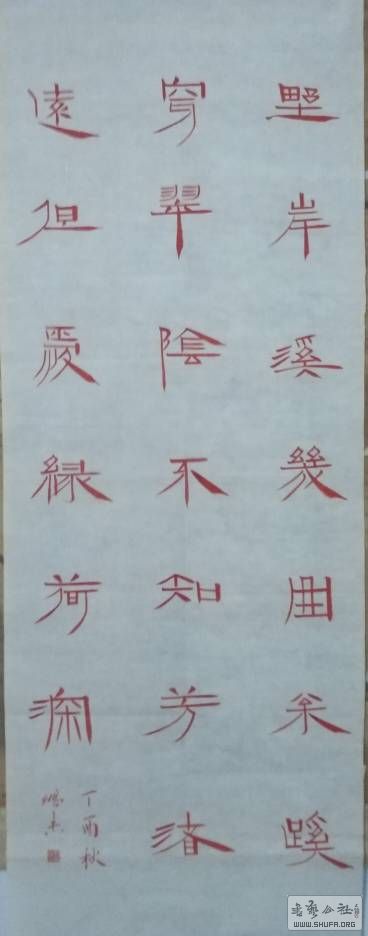 野岸溪幾曲枀蹊
穹翠陰不知芳渚
遠但愛緑荷深
丁酉秋
书艺公社
WWW.SHUFA.ORG